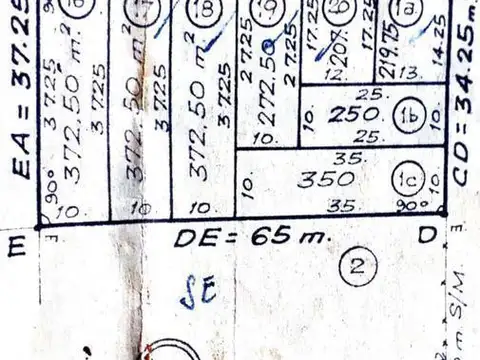 EA = 37.25
90°
37.25
372.50 m.²
37.25
90°
10.
372.50 m.²
37.25
10.
18
372.50 m.²
37.25
10.
27.25
272.50
27.25
10.
17.25
207.
12.
17.25
1a
219.75
14.25
13.
25.
10.
250
1b
25.
35.
10.
350
1c
10.
35
90°
CD = 34.25 m.
E
DE = 65 m.
D
E
2
SE
m. S/M.